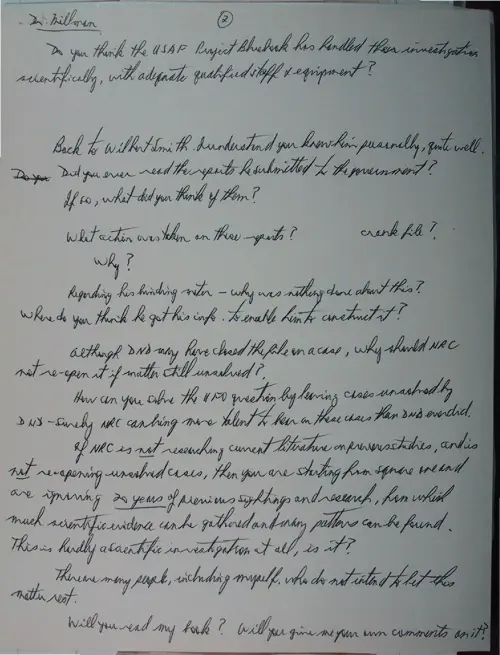 Dr. Millman
2
Do you think the USAF Project Bluebook has handled their investigation
scientifically, with adequate qualified staff & equipment?
Back to Wilbert Smith. I understand you knew him personally, quite well.
Do you Did you ever read the reports he submitted to the government?
If so, what did you think of them?
What action was taken on these reports? crank file?
Why?
Regarding his binding meter - why was nothing done about this?
Where do you think he got his info. to enable him to construct it?
Although DND may have closed the file on a case, why should NRC
not re-open it if matter still unsolved?
How can you solve the UFO question by leaving cases unsolved by
DND - surely NRC can bring more talent to bear on these cases than DND ever did.
If NRC is not researching current literature or previous studies, and is
not re-opening unsolved cases, then you are starting from square one and
are ignoring 20 years of previous sightings and research, from which
much scientific evidence can be gathered and many patterns can be found.
This is hardly a scientific investigation at all, is it?
There are many people, including myself, who do not intend to let this
matter rest.
Will you read my book? Will you give me your own comments on it?